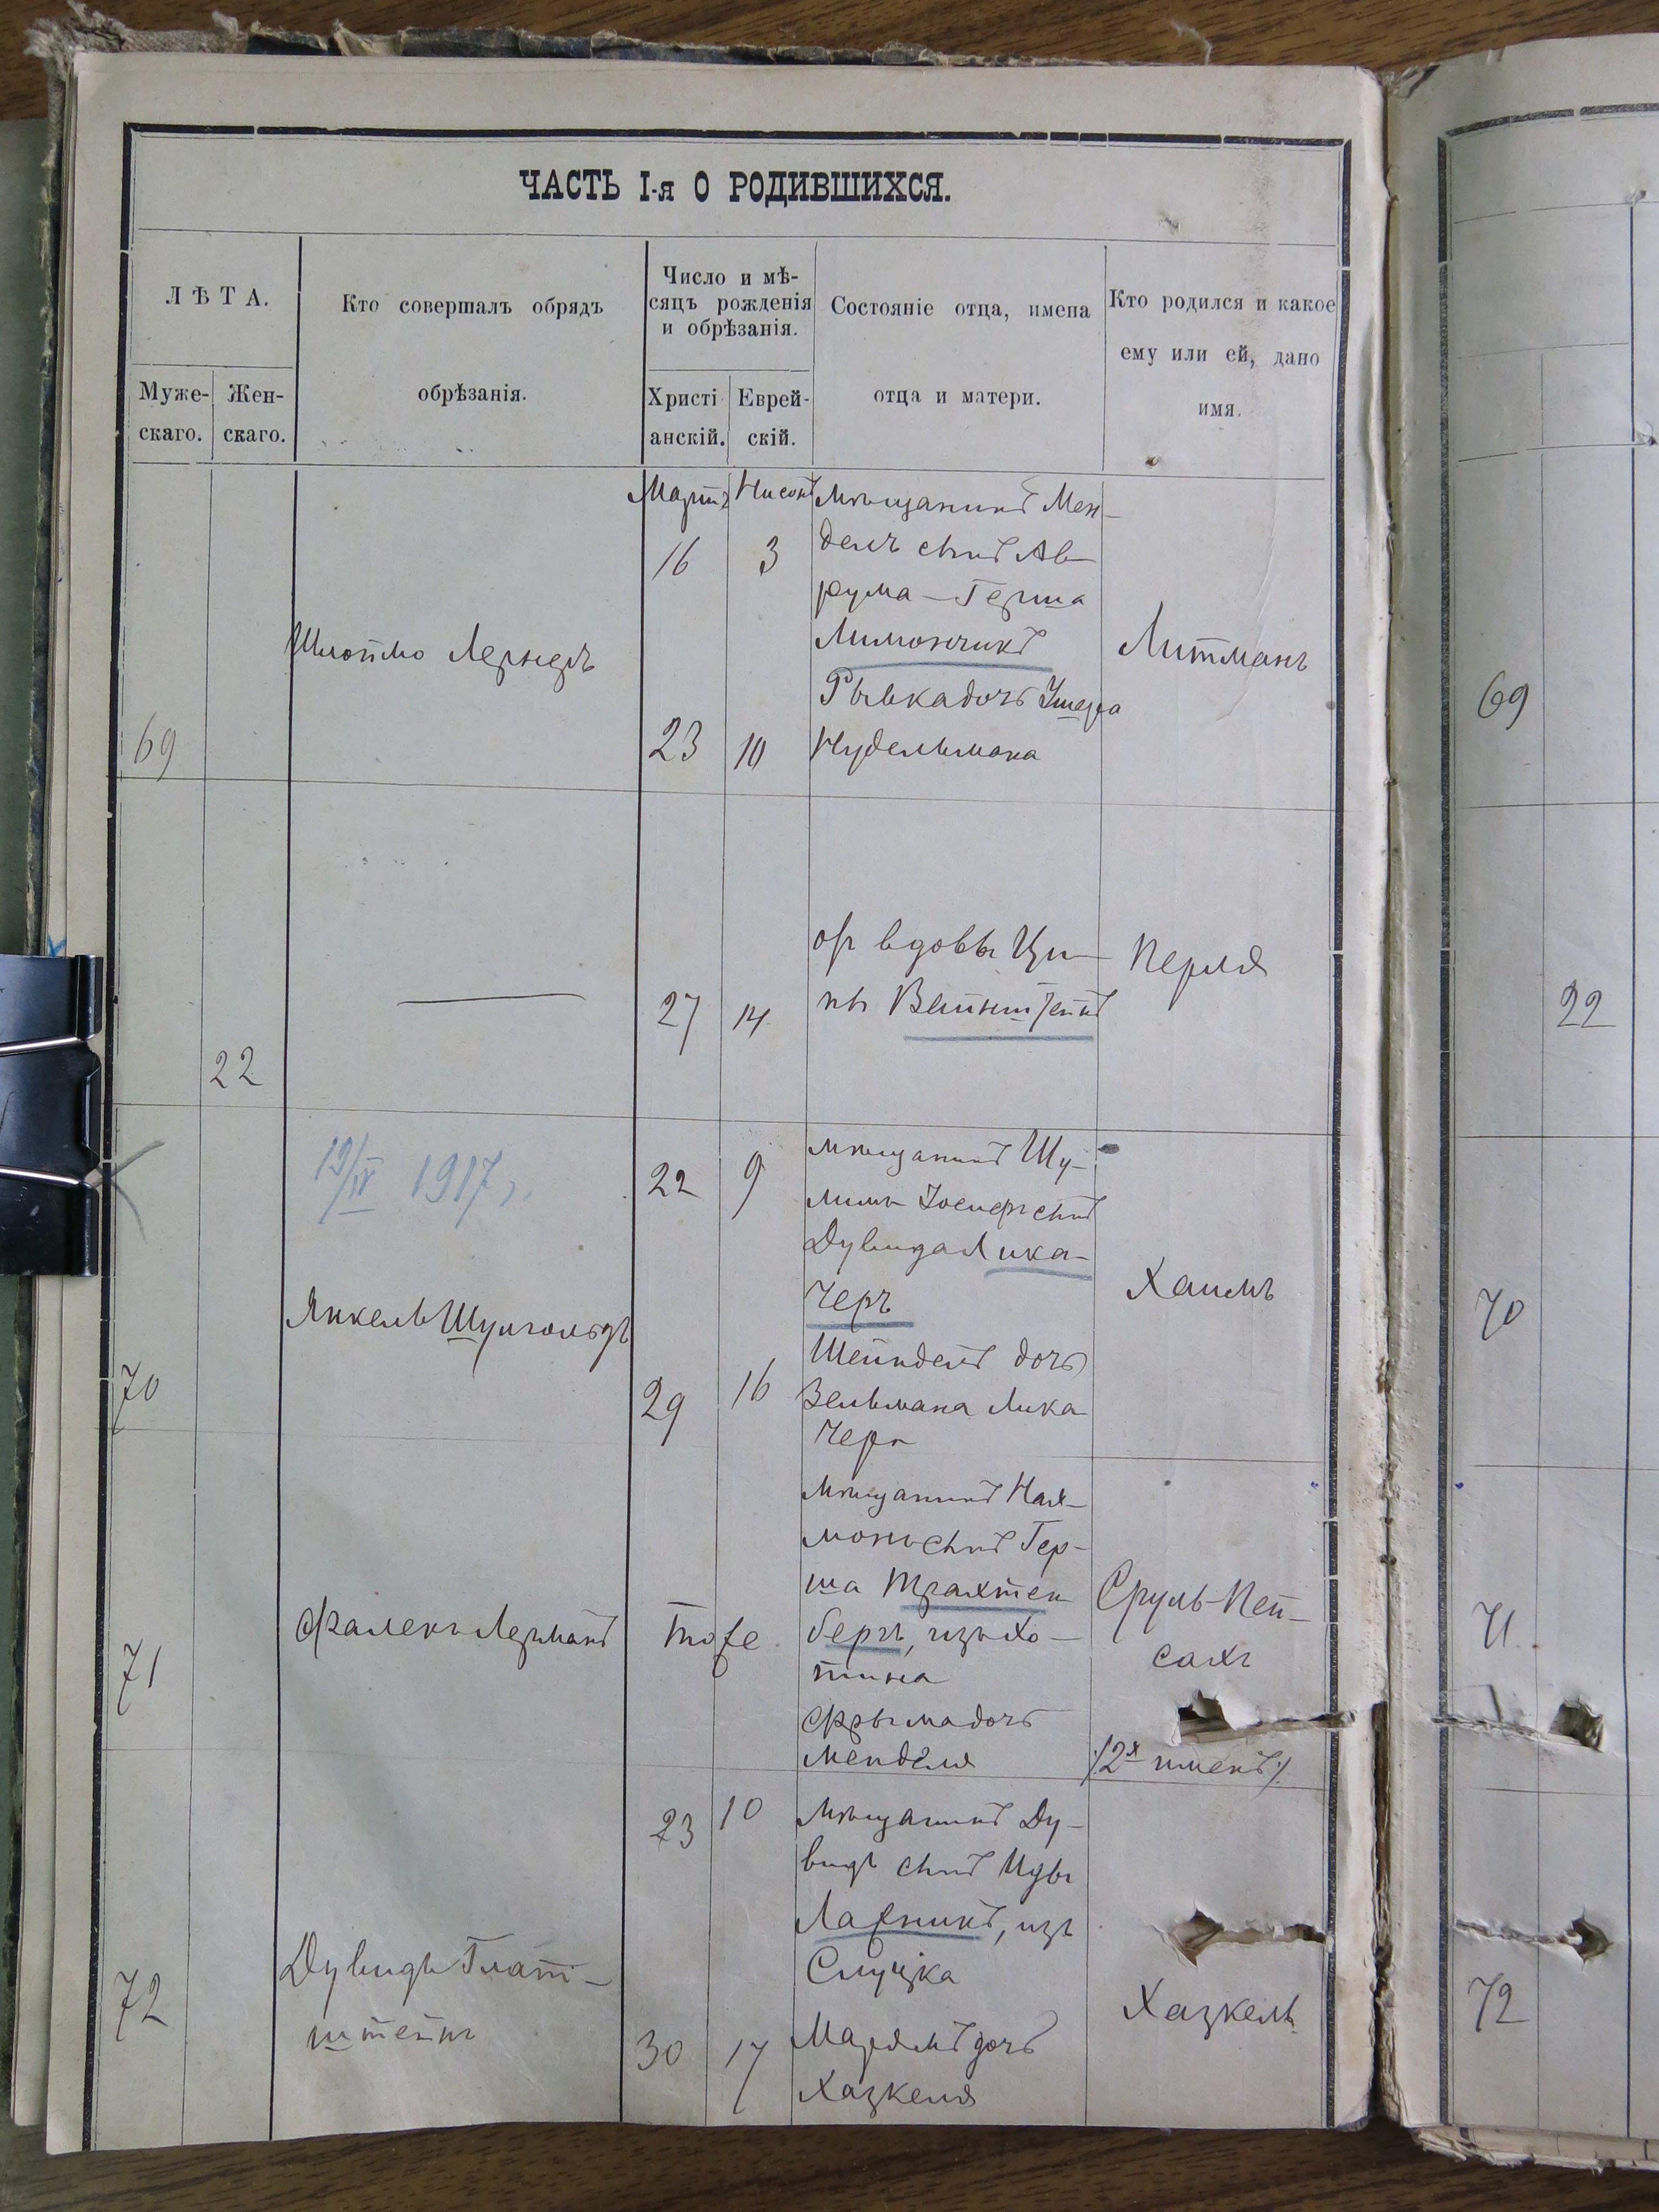 ЧАСТЬ I-я О РОДИВШИХСЯ.
ЛѢТА.
Муже-
скаго.
Жен-
скаго.
Кто совершалъ обрядъ
обрѣзанія.
Число и мѣ-
сяцъ рожденія
и обрѣзанія.
Христі
анскій.
Еврей-
скій.
Состояніе отца, имена
отца и матери.
Кто родился и какое
ему или ей, дано
имя.
69
Шлоймо Лернеръ
Мартъ Нисонъ
16 3
23 10
Мѣщанинъ Мен-
дель сынъ Ав-
рума-Герша
Лимончикъ
Рывка дочь Ушера
Нудельмана
Литманъ
69
22
27 14
вдовы Ци-
пы Вайнштейнъ
Перля
22
19/IV 1917 г.
70
Янкель Шунгольдъ
22 9
29 16
мѣщанинъ Шу-
лимъ Іосифъ сынъ
Дувида Лика-
черъ
Шейндель дочь
Зельмана Лика
чера
Хаимъ
70
71
Фалекъ Лерманъ
тоже
Мѣщанинъ Нах-
монъ сынъ Гер-
ша Трахтен
бергъ, изъ Хо-
тина
Фрыма дочь
Менделя
Сруль-Пей-
сахъ
/2х именъ/
71
72
Дувидъ Глат-
штейнъ
23 10
30 17
Мѣщанинъ Ду-
видъ сынъ Иды
изъ
Слуцка
Марямъ дочь
Хазкеля
Хазкель
72